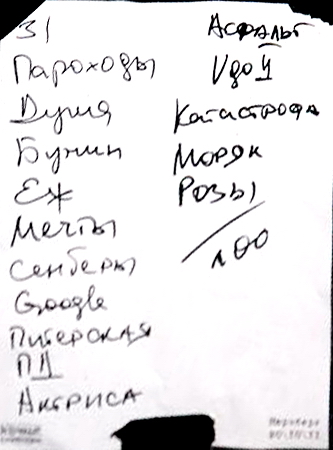 31
Пароходы
Душа
Бунин
Еж
Мечты
Сенберы
Google
Питерская
ПД
Актриса
Асфальт
Удой
Катастрофа
Моряк
Розы
100